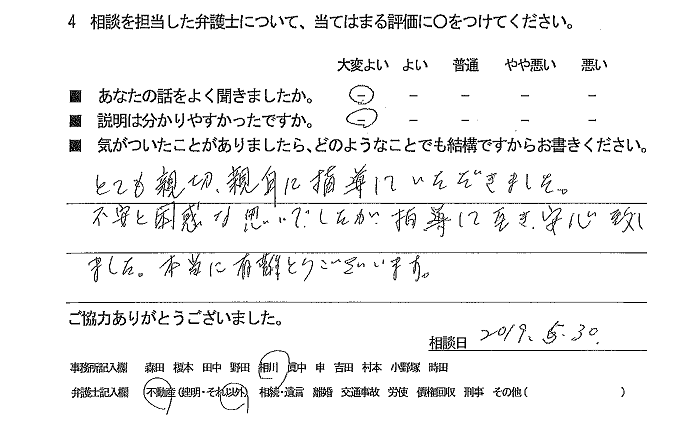 4 相談を担当した弁護士について、当てはまる評価に〇をつけてください。
大変よい よい 普通 やや悪い 悪い
■ あなたの話をよく聞きましたか。 － － － － －
■ 説明は分かりやすかったですか。 － － － － －
■ 気がついたことがありましたら、どのようなことでも結構ですからお書きください。
とても親切、親身に指導していただきました。
不安と困惑な思いでしたが、指導して頂き、安心致し
ました。本当に有難とうございます。
ご協力ありがとうございました。
相談日 2019. 5. 30.
事務所記入欄 森田 榎本 田中 野田 相川 中 申 吉田 村本 小野塚 時田
弁護士記入欄 不動産（建明・それ以外） 相続・遺言 離婚 交通事故 労使 債権回収 刑事 その他（ ）